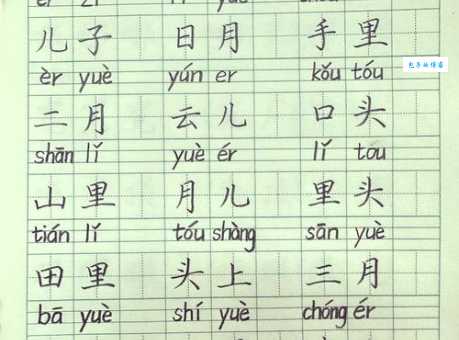 儿子 日月 手里
èr yuè yún er kǒu tóu
二月 云儿 口头
shān lǐ yuè ér lǐ tou
山里 月儿 里头
tián lǐ tóu shàng sān yuè
田里 头上 三月
bā yuè shí yuè chóng ér